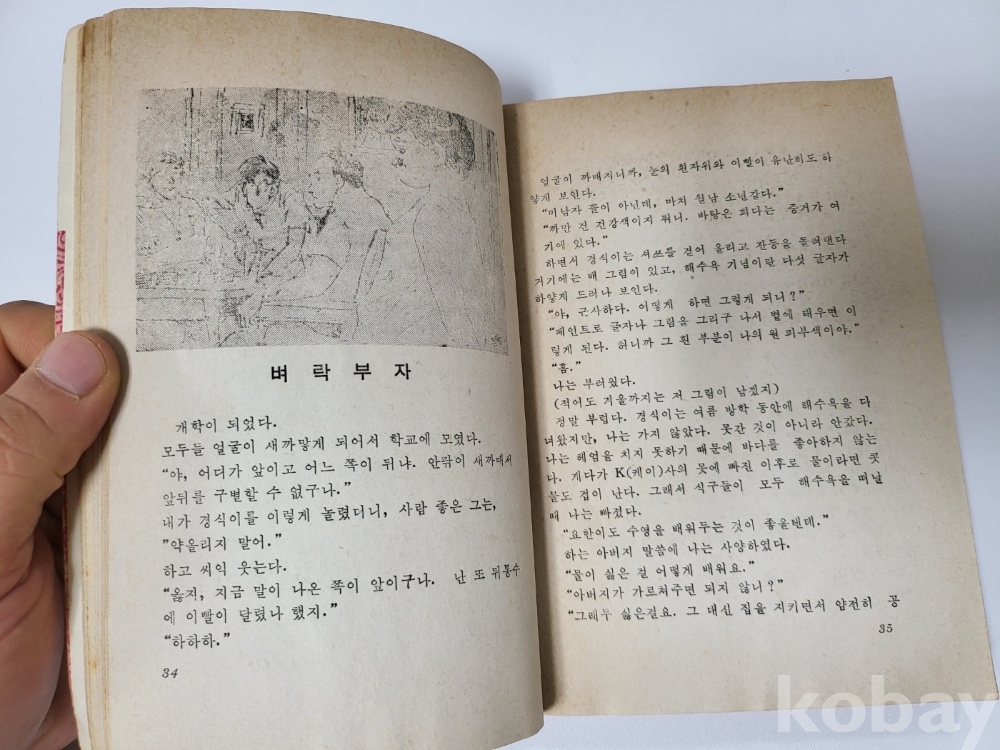 벼 락 부 자
개학이 되었다.
모두들 얼굴이 새까맣게 되어서 학교에 모였다.
“야, 어디가 앞이고 어느 쪽이 뒤냐. 안팎이 새까매서
앞뒤를 구별할 수 없구나.”
내가 경식이를 이렇게 놀렸더니, 사람 좋은 그는,
“약올리지 말어.”
하고 씨익 웃는다.
“옳지, 지금 말이 나온 쪽이 앞이구나. 난 또 뒤통수
에 이빨이 달렸나 했지.”
“하하하.”
34
얼굴이 까매지니까, 눈의 흰자위와 이빨이 유난히도 하
얗게 보인다.
“미남자 꼴이 아닌데, 마치 월남 소년같다.”
“까만 건 건강색이지 뭐니. 바탕은 희다는 증거가 여
기에 있다.”
하면서 경식이는 셔쓰를 걷어 올리고 잔등을 돌려댄다
거기에는 배 그림이 있고, 해수욕 기념이란 다섯 글자가
하얗게 드러나 보인다.
“야, 근사하다. 어떻게 하면 그렇게 되니?”
“페인트로 글자나 그림을 그리구 나서 볕에 태우면 이
렇게 된다. 허니까 그 흰 부분이 나의 원 피부색이야.”
“흠.”
나는 부러웠다.
(적어도 겨울까지는 저 그림이 남겠지)
정말 부럽다. 경식이는 여름 방학 동안에 해수욕을 다
녀왔지만, 나는 가지 않았다. 못간 것이 아니라 안갔다.
나는 헤엄을 치지 못하기 때문에 바다를 좋아하지 않는
다. 게다가 K(케이)사의 못에 빠진 이후로 물이라면 콧
물도 겁이 난다. 그래서 식구들이 모두 해수욕을 떠날
때 나는 빠졌다.
“요한이도 수영을 배워두는 것이 좋을텐데.”
하는 아버지 말씀에 나는 사양하였다.
“물이 싫은 걸 어떻게 배워요.”
“아버지가 가르쳐주면 되지 않니?”
“그래두 싫은걸요. 그 대신 집을 지키면서 얌전히 공
35
kobay